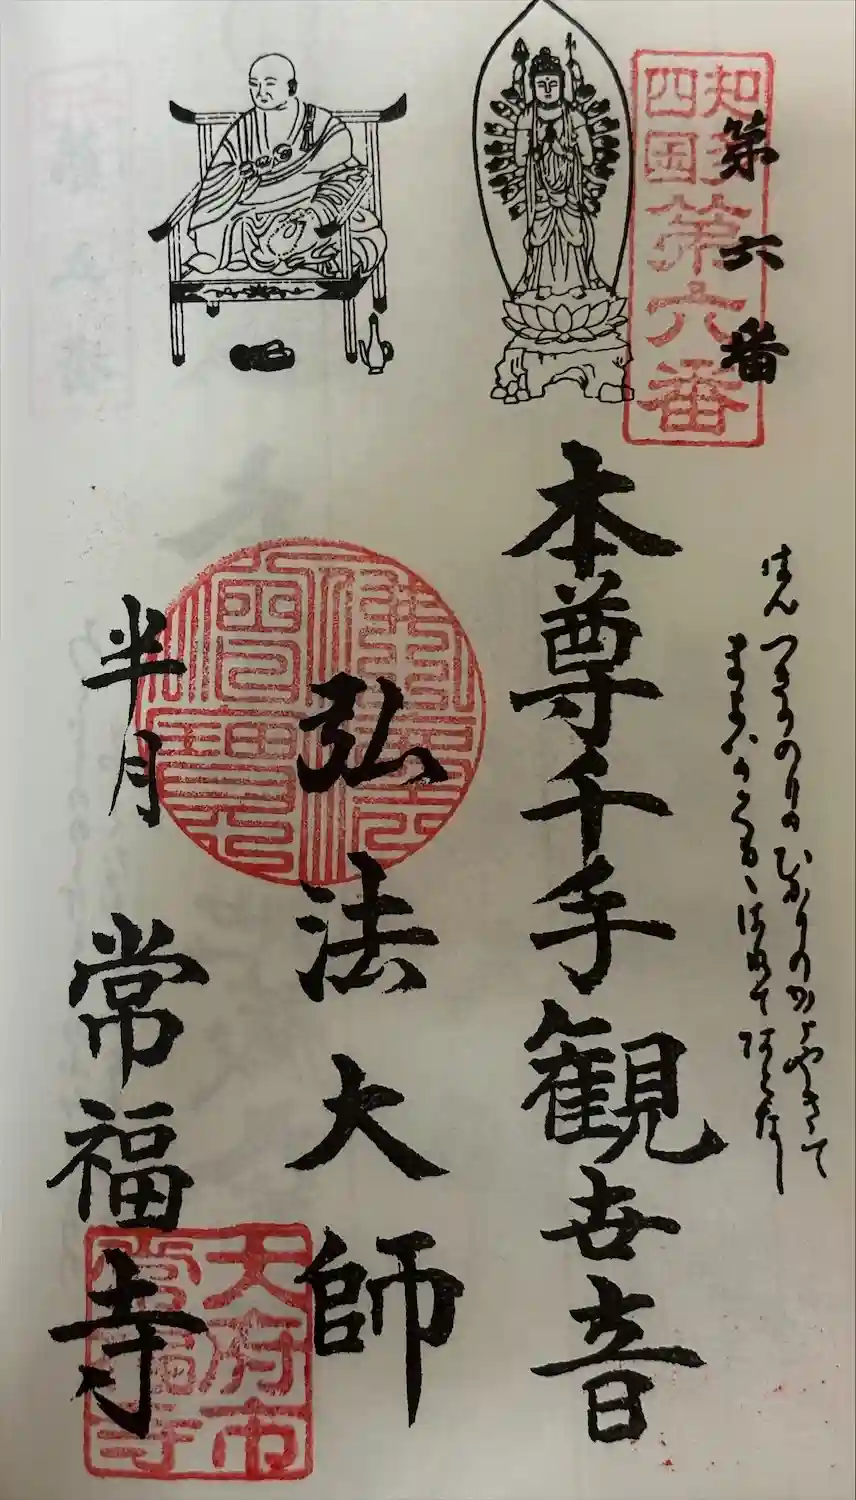 知多
四国
第六番
第六番
はんつきのりのひかりのかゝやきて
くもゝはれてあとなし
本尊千手観世音
弘法大師
半月
常福寺
大府市
常福寺